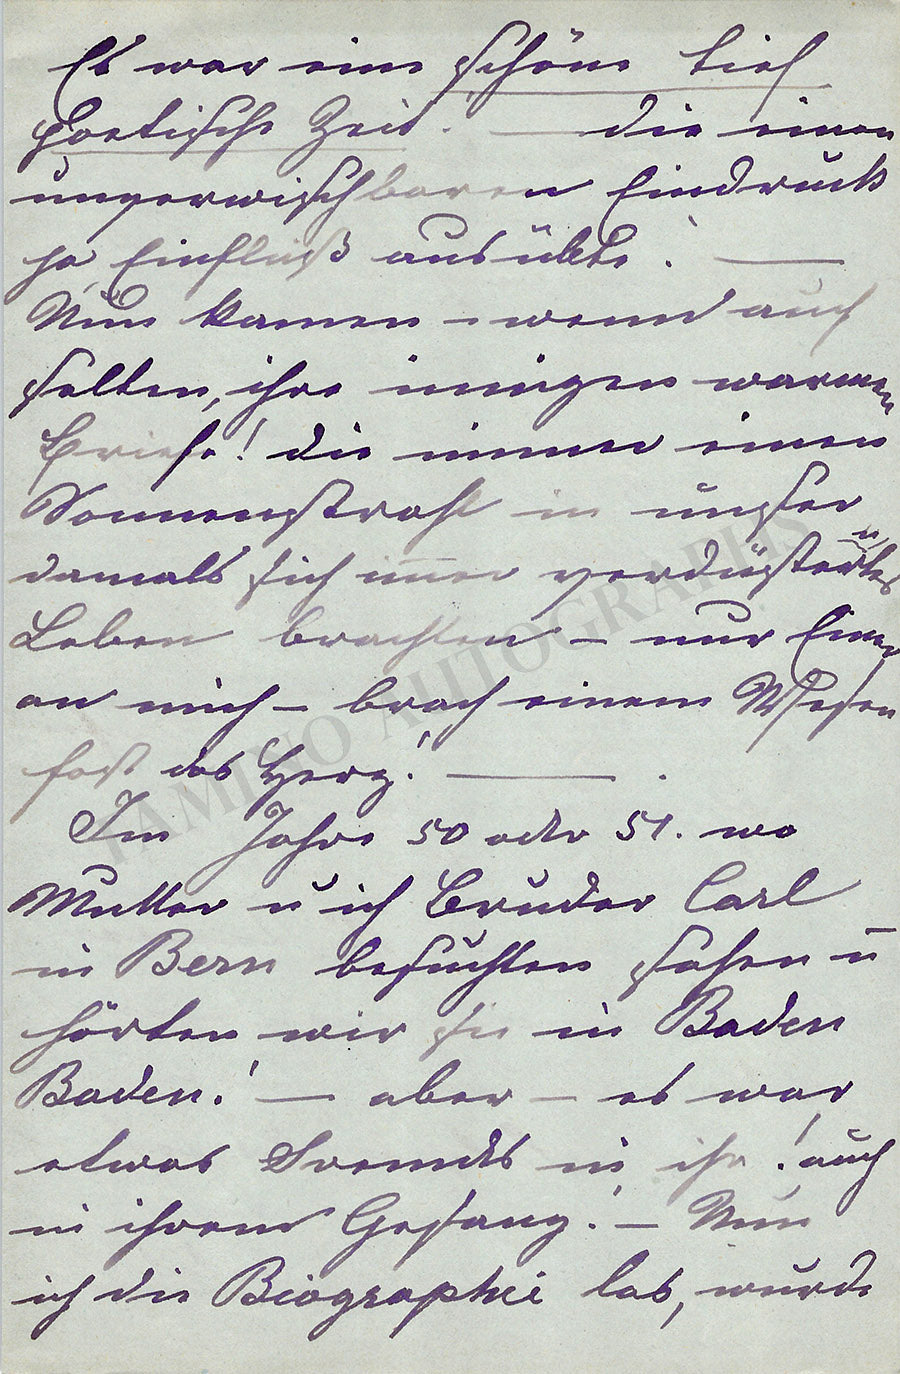 Es war eine schöne tief
poetische Zeit. — die einen
unverwischbaren Eindruck
ja, Einfluß ausübte! —
Nun kamen – wenn auch
selten, ihre innigen warmen
Briefe! die immer einen
Sonnenstrahl in unser
damals sich immer verdüstertes
Leben brachten – nur Einer
an mich – brach einem Wesen
fast das Herz! — .
Im Jahre 50 oder 51. wo
Mutter u ich Bruder Carl
in Bern besuchten sahen u
hörten wir sie in Baden
Baden! — aber – es war
etwas Fremdes in ihr! auch
in ihrem Gesang! – Nun
ich die Biographie las, wurde
TAMINO AUTOGRAPHS